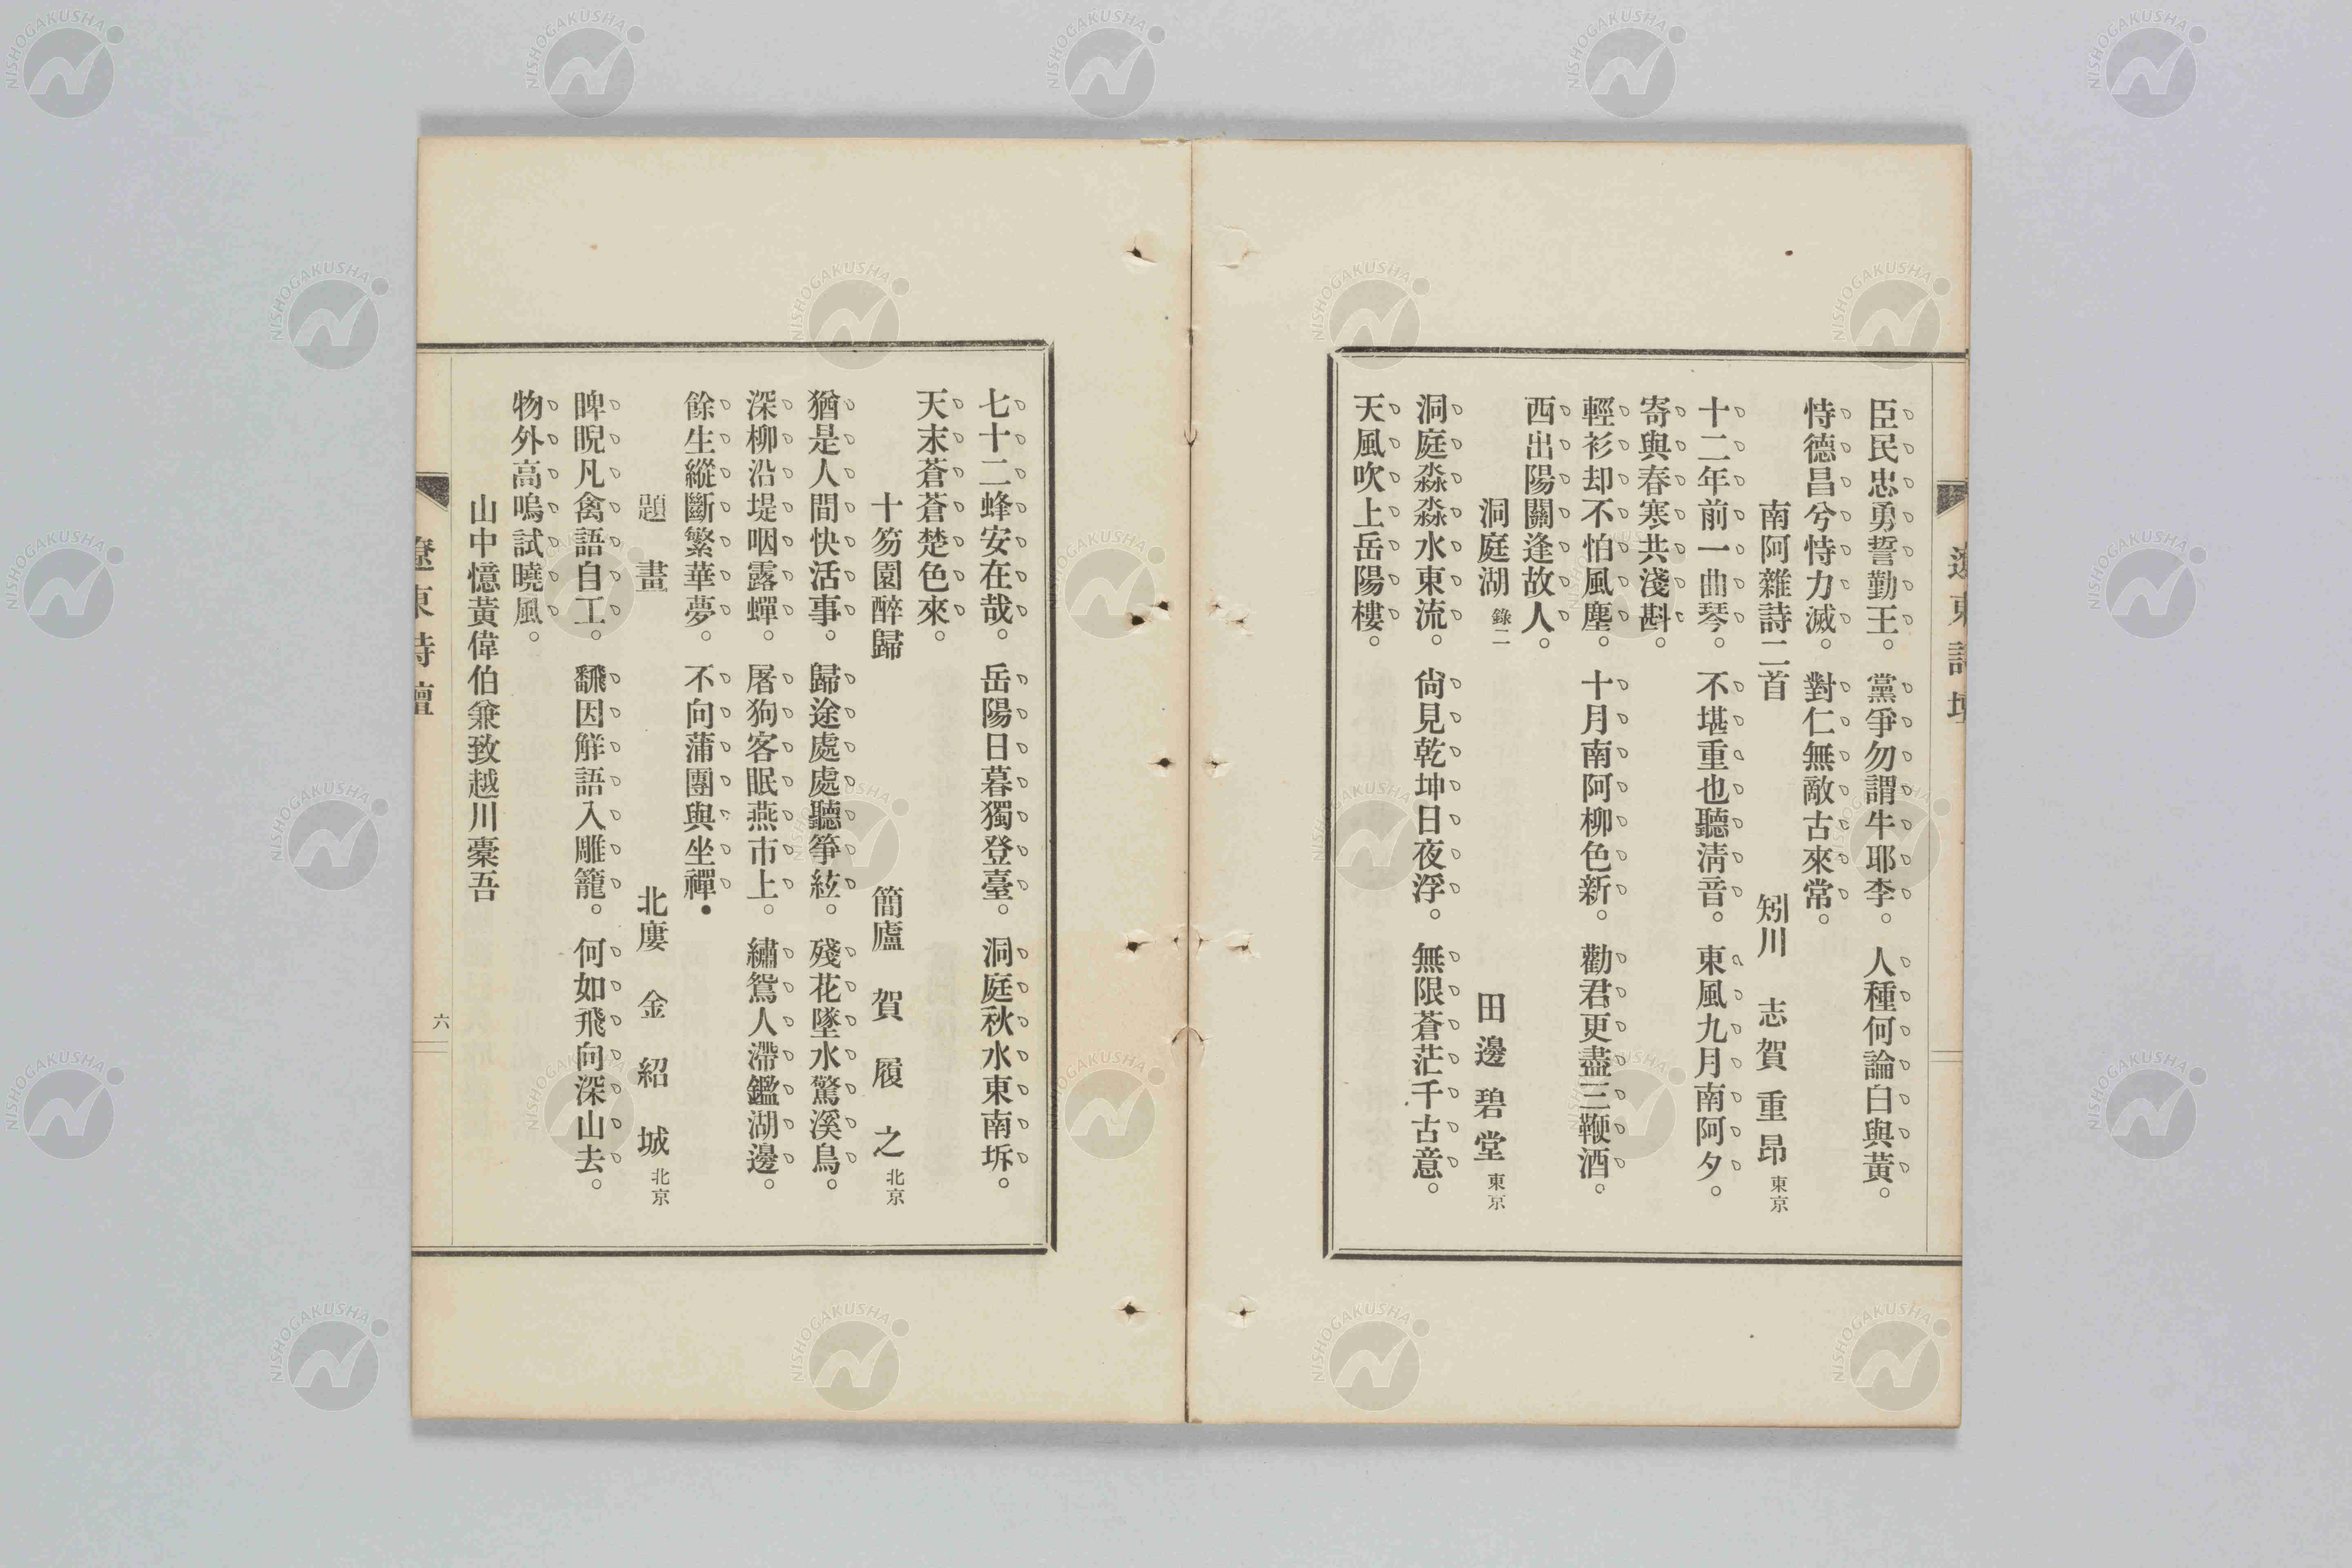 臣民忠勇誓勤王。黨爭勿謂牛耶李。人種何論白與黃。
恃德昌兮恃力滅。對仁無敵古來常。
南阿雜詩二首 矧川 志賀重昂 東京
十二年前一曲琴。不堪重也聽淸音。東風九月南阿夕。
寄與春寒共淺斟。
輕衫却不怕風塵。十月南阿柳色新。勸君更盡三鞭酒。
西出陽關逢故人。
洞庭湖 錄二 田邊碧堂 東京
洞庭淼淼水東流。尙見乾坤日夜浮。無限蒼茫千古意。
天風吹上岳陽樓。
七十二蜂安在哉。岳陽日暮獨登臺。洞庭秋水東南坼。
天末蒼蒼楚色來。
十笏園醉歸 簡廬 賀履之 北京
猶是人間快活事。歸途處處聽箏絃。殘花墜水驚溪鳥。
深柳沿堤咽露蟬。屠狗客眠燕市上。繡鴛人滯鑑湖邊。
餘生縱斷繁華夢。不向蒲團與坐禪。
題畫 北廔 金紹城 北京
睥睨凡禽語自工。飜因解語入雕籠。何如飛向深山去。
物外高鳴試曉風。
山中憶黃偉伯兼致越川稾吾
遼東詩壇
六
NISHOGAKUSHA